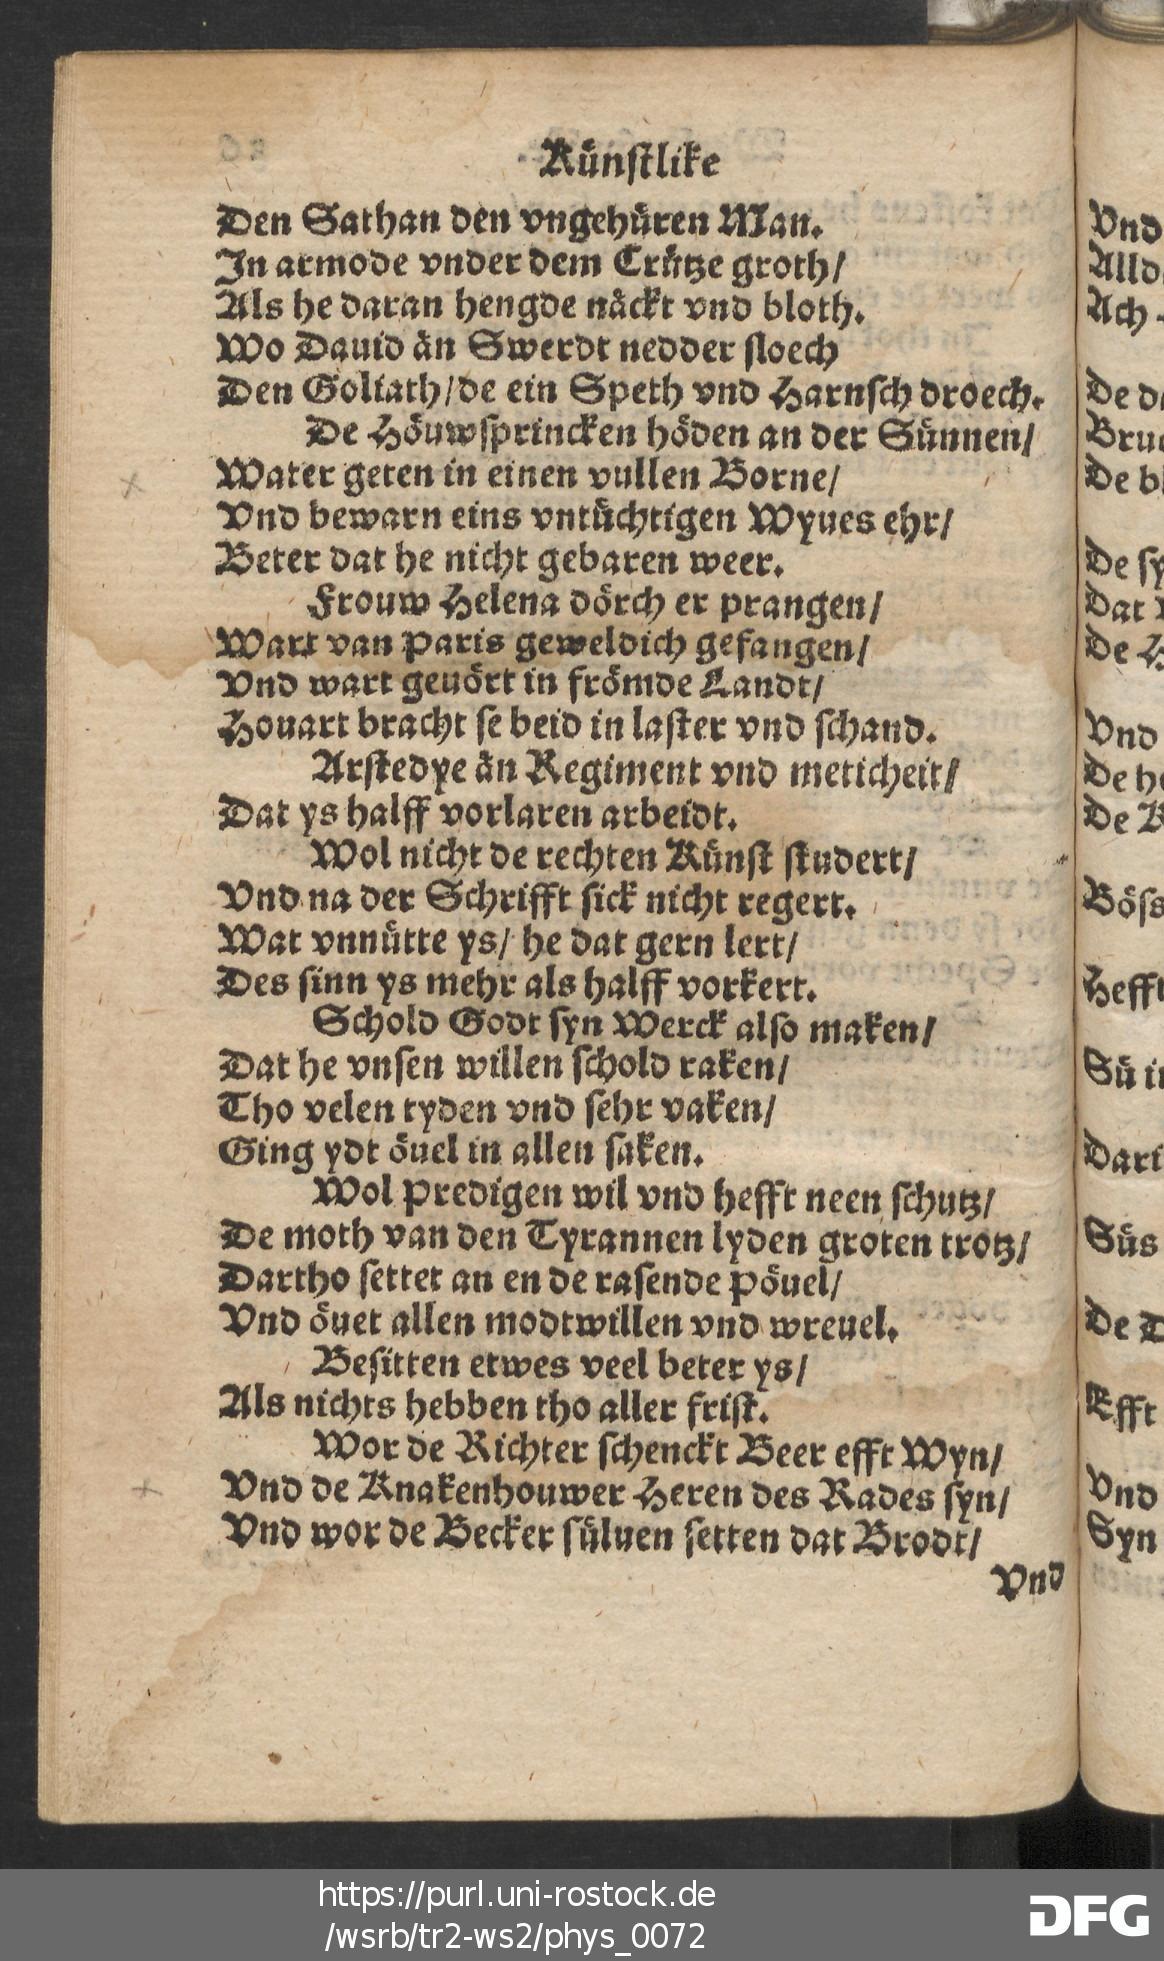 Künstlike
Den Sathan den vngehüren Man.
In armode vnder dem Crütze groth/
Als he daran hengde näckt vnd bloth.
Wo Dauid än Swerdt nedder sloech
Den Goliath/de ein Speth vnd Harnsch droech.
De Höuwsprincken höden an der Sünnen/
Water geten in einen vullen Borne/
Vnd bewarn eins vntüchtigen Wyues ehr/
Beter dat he nicht gebaren weer.
Frouw Helena dörch er prangen/
Wart van Paris geweldich gefangen/
Vnd wart geuört in frömde Landt/
Houart bracht se beid in laster vnd schand.
Arstedye än Regiment vnd meticheit/
Dat ys halff vorlaren arbeidt.
Wol nicht de rechten Künst studert/
Vnd na der Schrifft sick nicht regert.
Wat vnnütte ys/ he dat gern lert/
Des sinn ys mehr als halff vorkert.
Schold Godt syn Werck also maken/
Dat he vnsen willen schold raken/
Tho velen tyden vnd sehr vaken/
Ging ydt öuel in allen saken.
Wol Predigen wil vnd hefft neen schutz/
De moth van den Tyrannen lyden groten trotz/
Dartho settet an en de rasende Pöuel/
Vnd öuet allen modtwillen vnd wreuel.
Besitten etwes veel beter ys/
Als nichts hebben tho aller frist.
Wor de Richter schenckt Beer efft Wyn/
Vnd de Knakenhouwer Heren des Rades syn/
Vnd wor de Becker süluen setten dat Brodt/
Vnd
https://purl.uni-rostock.de
/wsrb/tr2-ws2/phys_0072
DFG